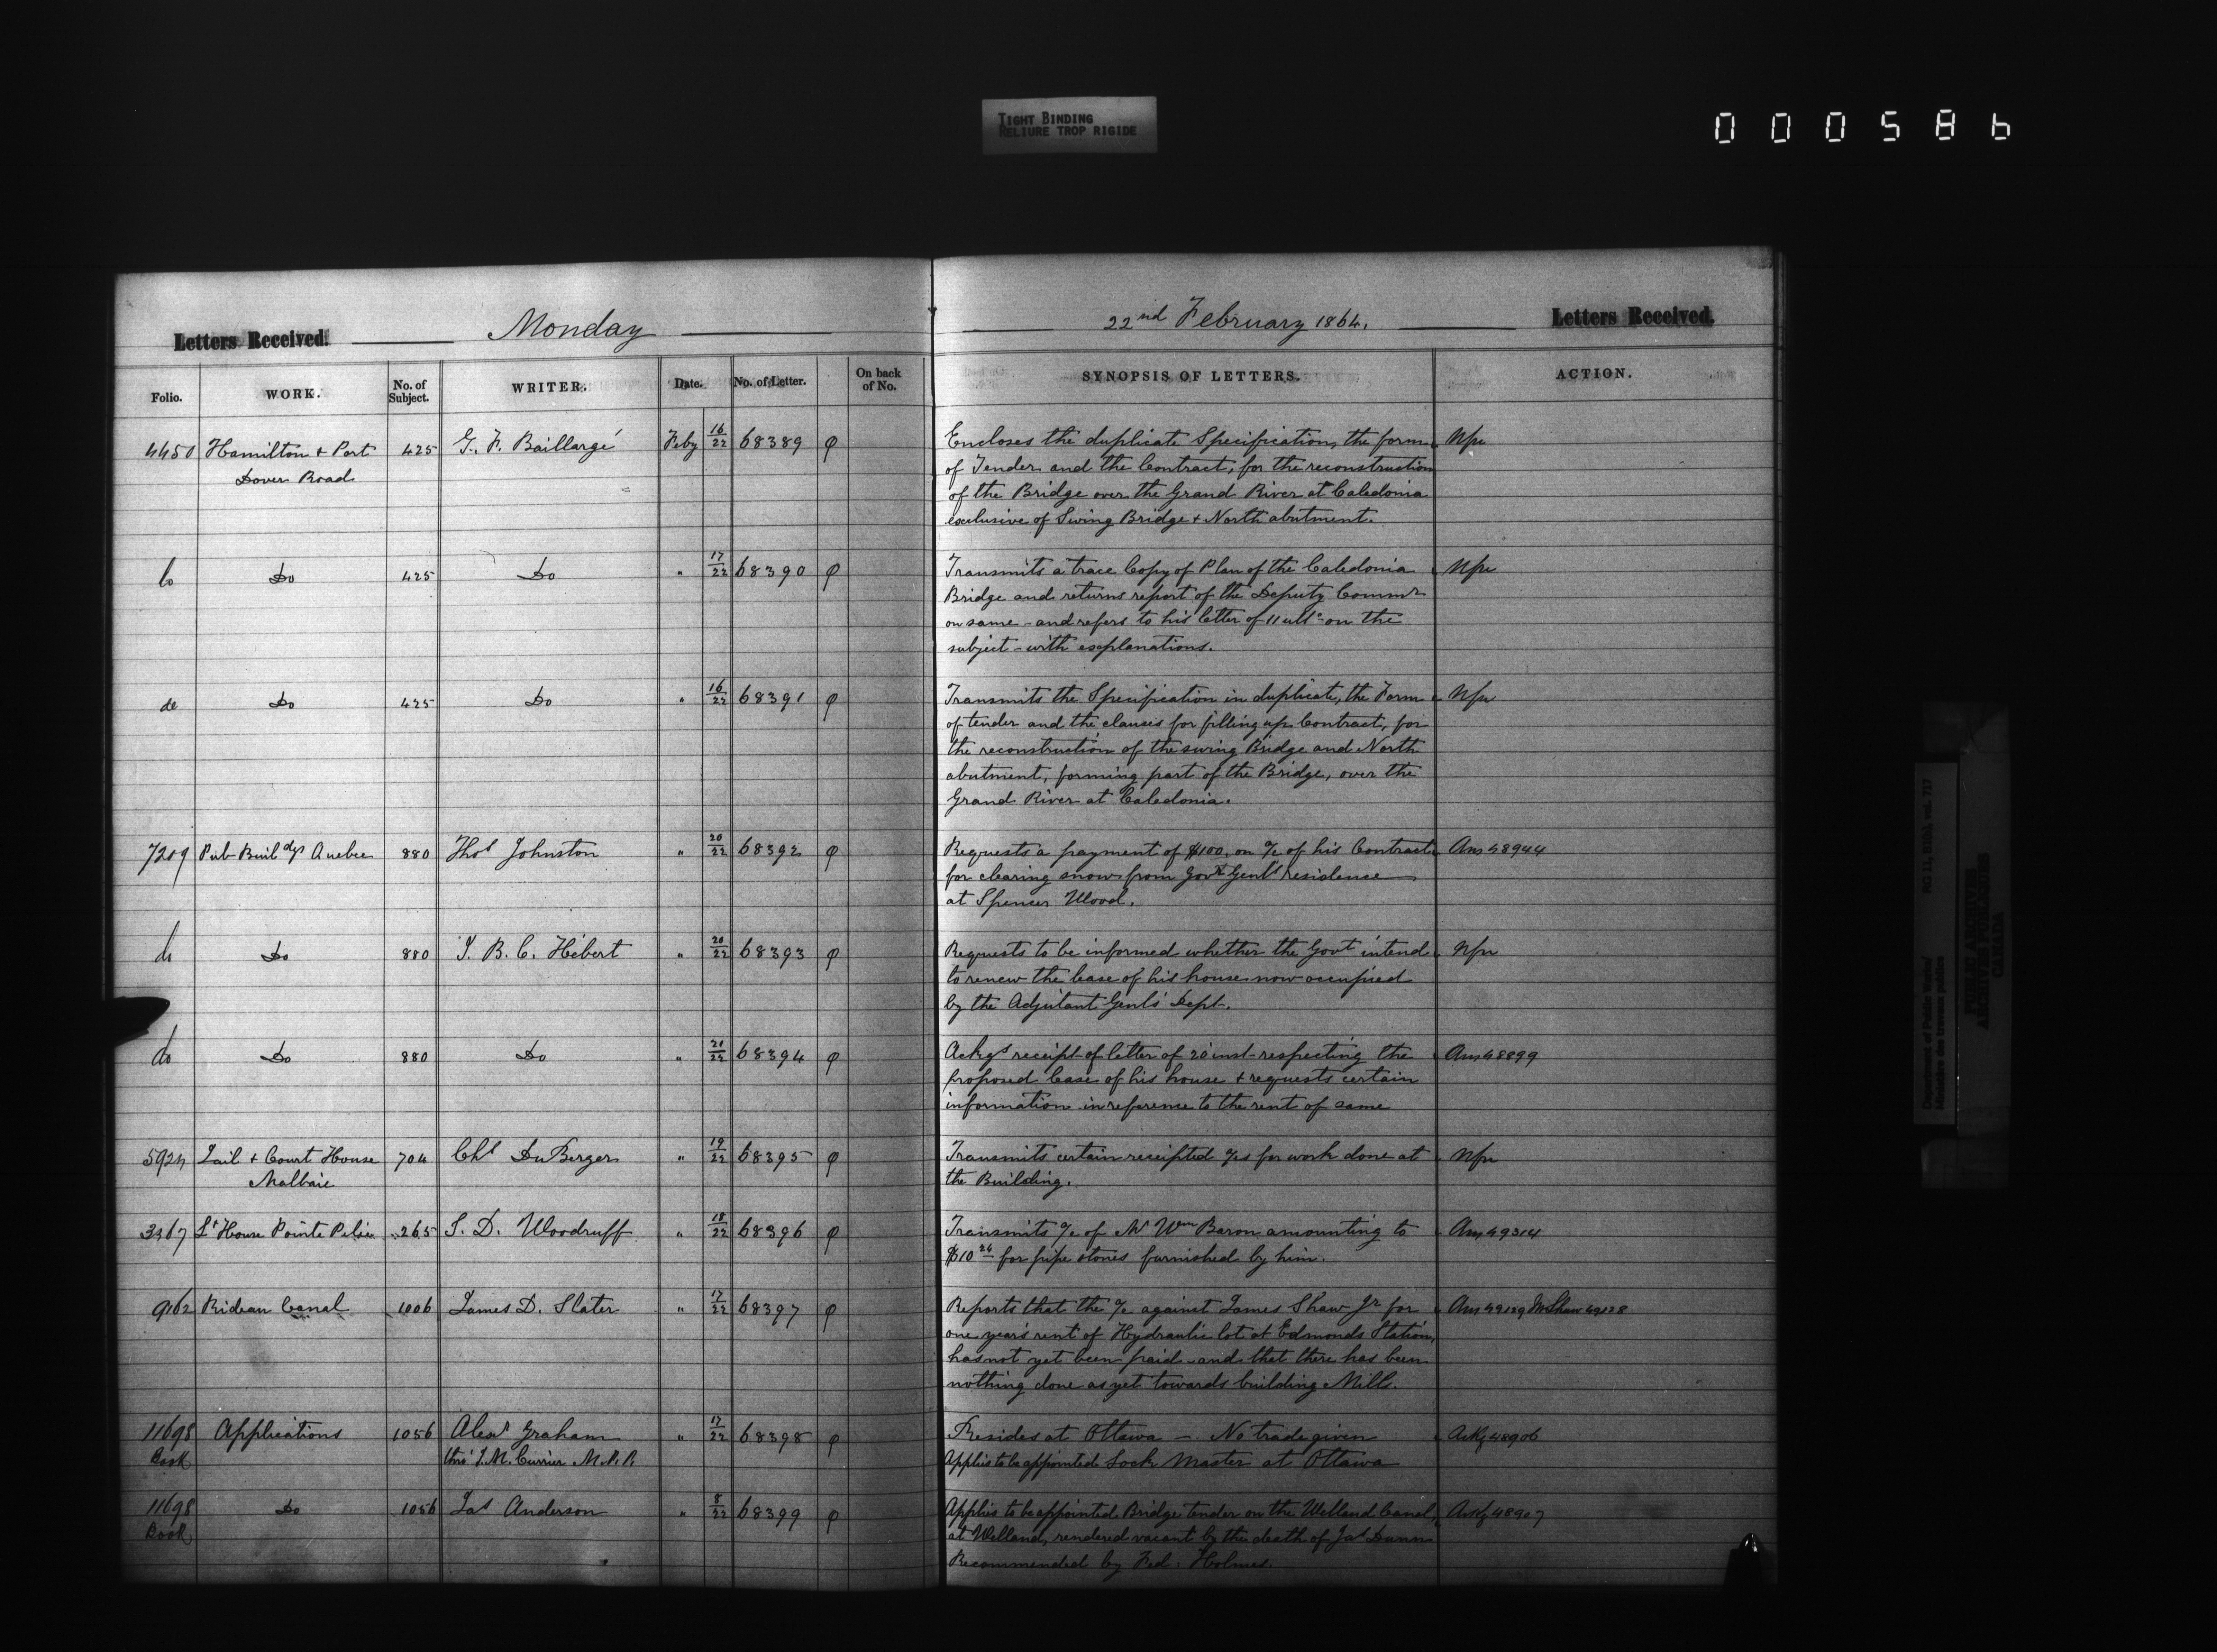 TIGHT BINDING
RELIURE TROP RIGIDE
000586
Letters Received. Monday
Folio. WORK. No. of Subject. WRITER. Date. No. of Letter. On back of No.
4450 Hamilton + Port 425 G. F. Baillargé Feby 16/22 68389 φ
Dover Road
do Do 425 Do " 17/22 68390 φ
do Do 425 Do " 16/22 68391 φ
7209 Pub Buildgs Quebec 880 Thos Johnston " 20/22 68392 φ
do Do 880 J. B. C. Hébert " 20/22 68393 φ
do Do 880 Do " 21/22 68394 φ
5924 Jail + Court House 704 Chs DuBerger " 19/22 68395 φ
Malbaie
3367 Lt House Pointe Pelée 265 S. D. Woodruff " 18/22 68396 φ
9162 Rideau Canal 1006 James D. Slater " 17/22 68397 φ
11698 Applications 1056 Alexr Graham " 17/22 68398 φ
Book thro' J. M. Currier M.P.P.
11698 Do 1056 Jas Anderson " 8/22 68399 φ
Book
22nd February 1864. Letters Received.
SYNOPSIS OF LETTERS. ACTION.
Encloses the duplicate Specification, the form Nfu
of Tender and the Contract, for the reconstruction
of the Bridge over the Grand River at Caledonia
exclusive of Swing Bridge + North abutment.
Transmits a trace Copy of Plan of the Caledonia Nfu
Bridge and returns report of the Deputy Commr
on same - and refers to his letter of 11 ulto on the
subject - with explanations.
Transmits the Specification in duplicate, the Form Nfu
of tender and the clauses for filling up Contract, for
the reconstruction of the swing Bridge and North
abutment, forming part of the Bridge, over the
Grand River at Caledonia.
Requests a payment of $100, on a/c of his Contract Ans 48944
for clearing snow from Govr Genl's residence
at Spencer Wood.
Requests to be informed whether the Govt intend Nfu
to renew the lease of his house now occupied
by the Adjutant Genls' Dept.
Ackgs receipt of letter of 20 inst - respecting the Ans 48899
proposed lease of his house + requests certain
information in reference to the rent of same
Transmits certain receipted a/cs for work done at Nfu
the Building.
Transmits a/c of Mr Wm Baron amounting to Ans 49314
$10 24 for pipe stones furnished by him.
Reports that the a/c against James Shaw Jr for Ans 49129 Mr Shaw 49128
one year's rent of Hydraulic lot at Edmonds Station,
has not yet been paid - and that there has been
nothing done as yet towards building Mills.
Resides at Ottawa - No trade given Ackg 48906
Applies to be appointed Lock Master at Ottawa
Applies to be appointed Bridge tender on the Welland Canal, Ackg 48907
at Welland, rendered vacant by the death of Jas Dunn
Recommended by Fed: Holmes.
Department of Public Works/
Ministère des travaux publics
RG 11, B1(b), vol. 717
PUBLIC ARCHIVES
ARCHIVES PUBLIQUES
CANADA